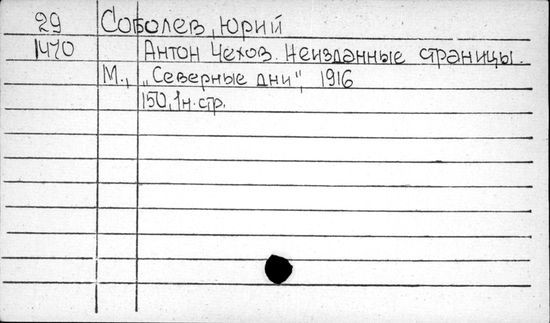 29 Соболев, Юрий
1470 Антон Чехов. Неизданные страницы.
М., „Северные дни", 1916
150, 1 н. стр.